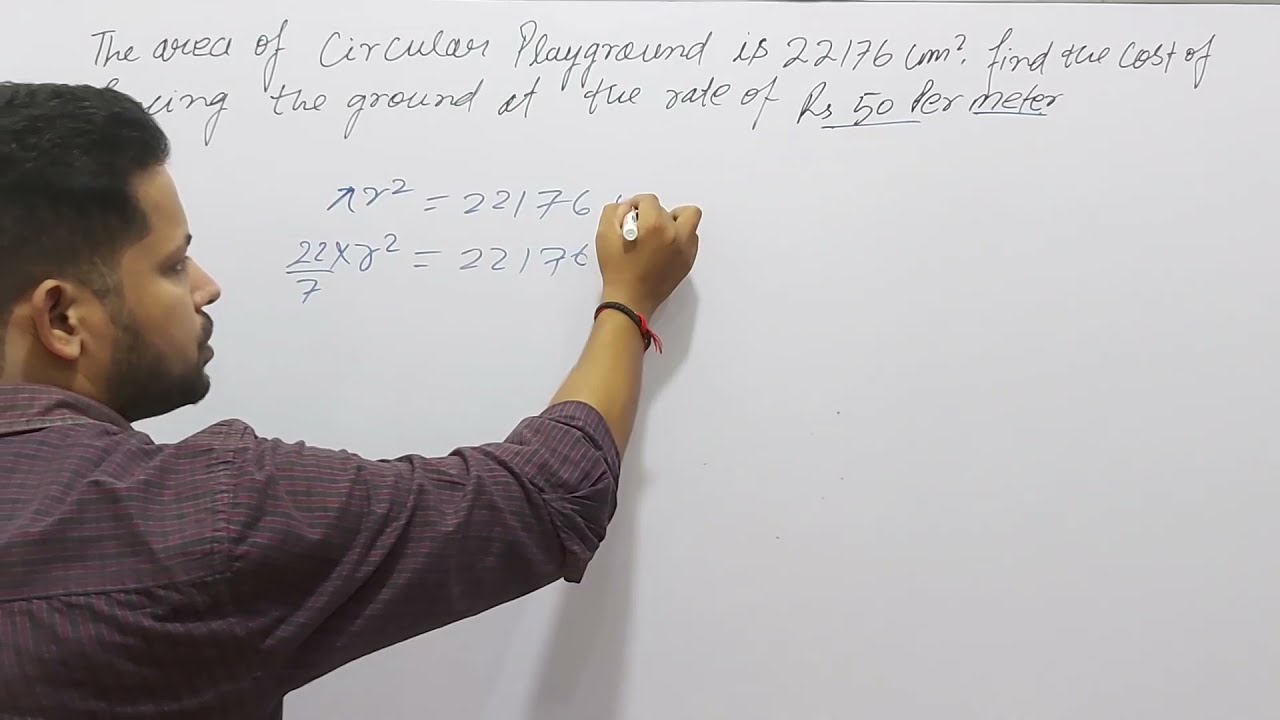 The area of Circular Playground is 22176 cm². find the cost of
the ground at the rate of Rs 50 Per meter
πr² = 22176
22/7 × r² = 22176